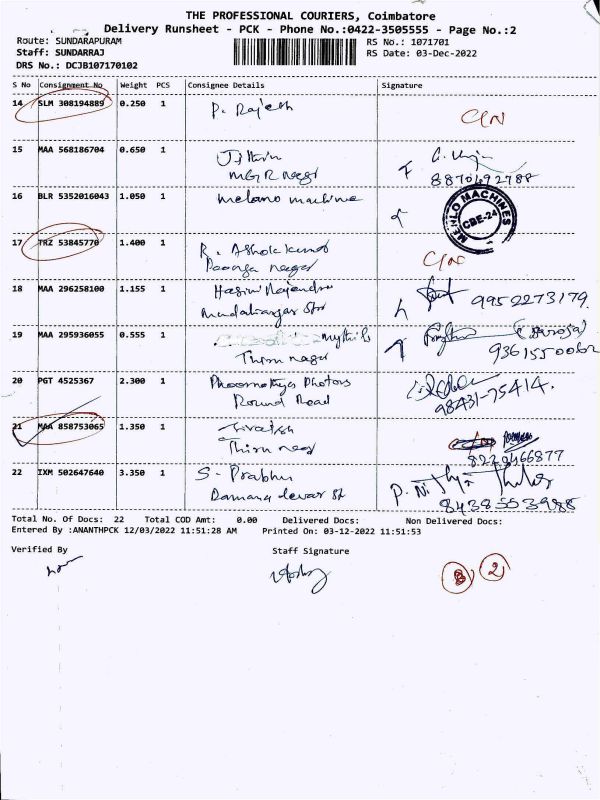 THE PROFESSIONAL COURIERS, Coimbatore
Delivery Runsheet - PCK - Phone No.:0422-3505555 - Page No.:2
Route: SUNDARAPURAM RS No.: 1071701
Staff: SUNDARRAJ RS Date: 03-Dec-2022
DRS No.: DCJB107170102
S No Consignment No Weight PCS Consignee Details Signature
14 SLM 308194889 0.250 1 P. Rajesh C/N
15 MAA 568186704 0.650 1
MGR nagar 8870492788
16 BLR 5352016043 1.050 1 melano machine
MENLO MACHINES
CBE-24
17 TRZ 53845770 1.400 1 R. Ashokkumar C/N
Poonga nagar
18 MAA 296258100 1.155 1 Hasini Rajendra 9952273179
Mudaliar Str
19 MAA 295936055 0.555 1 mythili (Saroja)
Thiru nagar 9361550062
20 PGT 4525367 2.300 1 Photos
Round Road 98431-75414.
21 MAA 858753065 1.350 1
Thiru nagar 8220466877
22 IXM 502647640 3.350 1 S. Prabhu P. Nithya
Damana devar St 8438553988
Total No. Of Docs: 22 Total COD Amt: 0.00 Delivered Docs: Non Delivered Docs:
Entered By :ANANTHPCK 12/03/2022 11:51:28 AM Printed On: 03-12-2022 11:51:53
Verified By Staff Signature
8 2